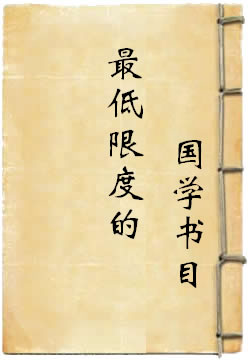 最低限度的
国学书目